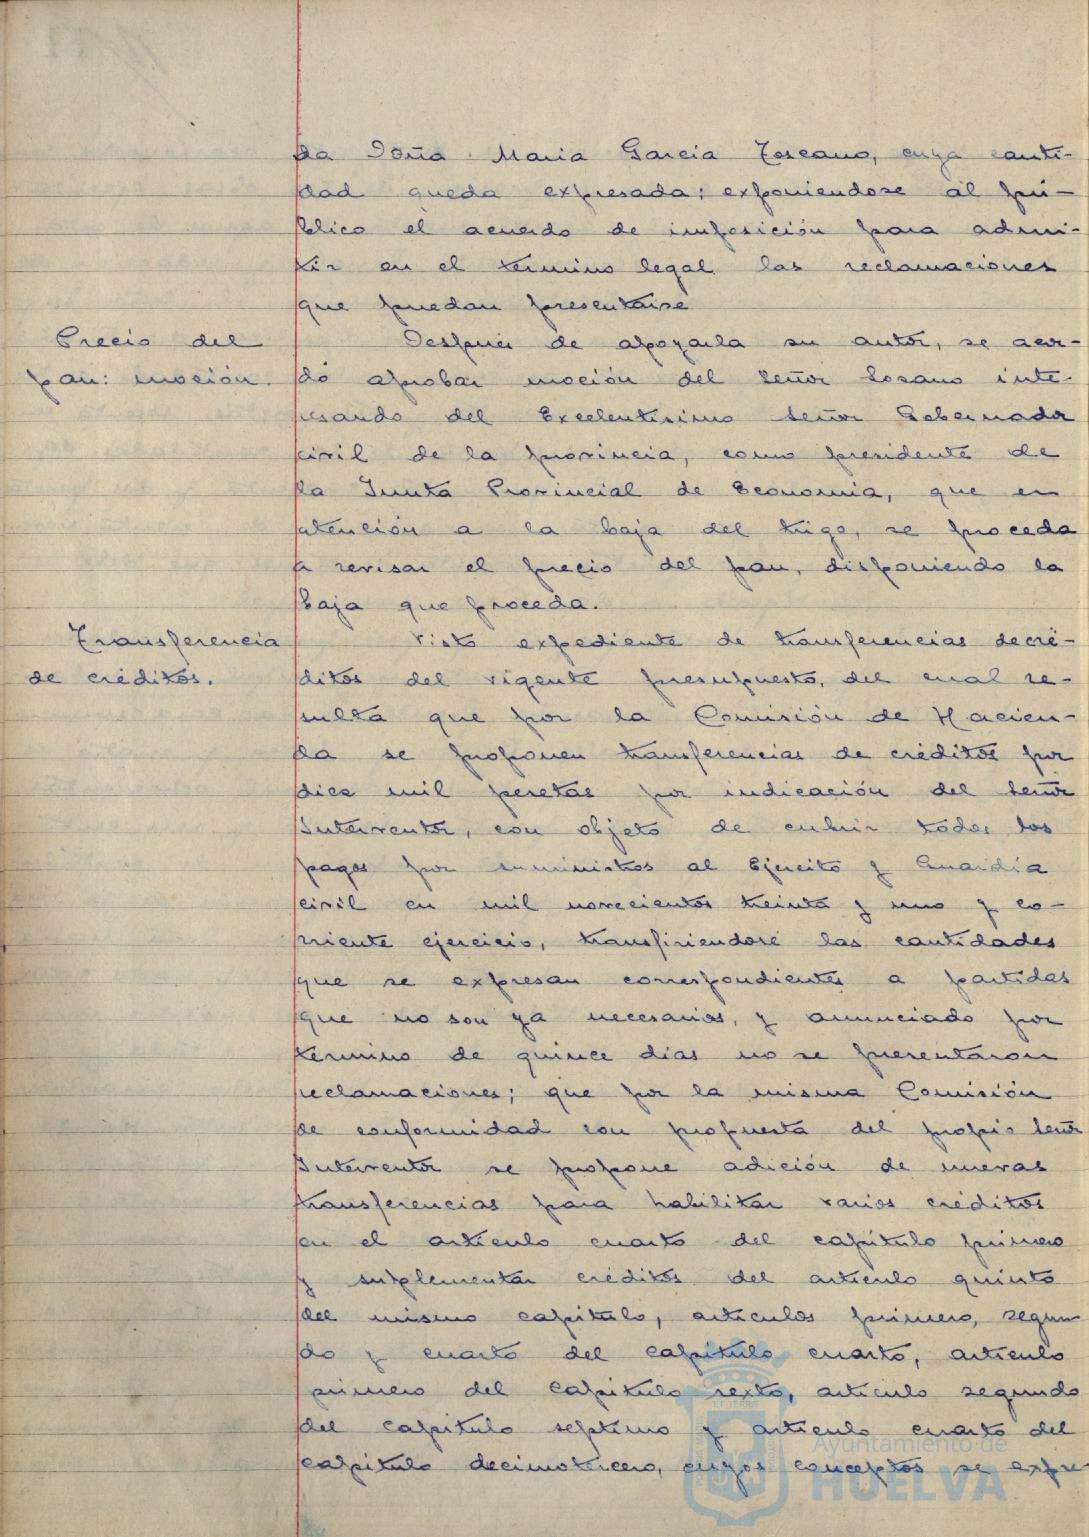 da Doña Maria Garcia Toscano, cuya canti-
dad queda expresada; exponiendose al pú-
blico el acuerdo de imposición para admi-
tir en el termino legal las reclamaciones
que puedan presentarse
Precio del
pan: moción.
Despues de apoyarla su autor, se acor-
dó aprobar moción del señor Lozano inte-
resando del Excelentisimo Señor Gobernador
civil de la provincia, como presidente de
la Junta Provincial de Economia, que en
atención a la baja del trigo, se proceda
a revisar el precio del pan, disponiendo la
baja que proceda.
Transferencia
de créditos.
Visto expediente de transferencias de cré-
ditos del vigente presupuesto, del cual re-
sulta que por la Comisión de Hacien-
da se proponen transferencias de créditos por
diez mil pesetas por indicación del Señor
Interventor, con objeto de cubrir todos los
pagos por suministros al Ejercito y Guardia
civil en mil novecientos treinta y uno y co-
rriente ejercicio, transfiriendose las cantidades
que se expresan correspondientes a partidas
que no son ya necesarias, y anunciado por
termino de quince dias no se presentaron
reclamaciones; que por la misma Comisión
de conformidad con propuesta del propio Señor
Interventor se propone adición de nuevas
transferencias para habilitar varios créditos
en el articulo cuarto del capítulo primero
y suplementar créditos del articulo quinto
del mismo capitulo, articulos primero, segun-
do y cuarto del capítulo cuarto, articulo
primero del capitulo sexto, articulo segundo
del capitulo septimo y articulo cuarto del
capitulo decimotercero, cuyos conceptos se expre
Ayuntamiento de
HUELVA